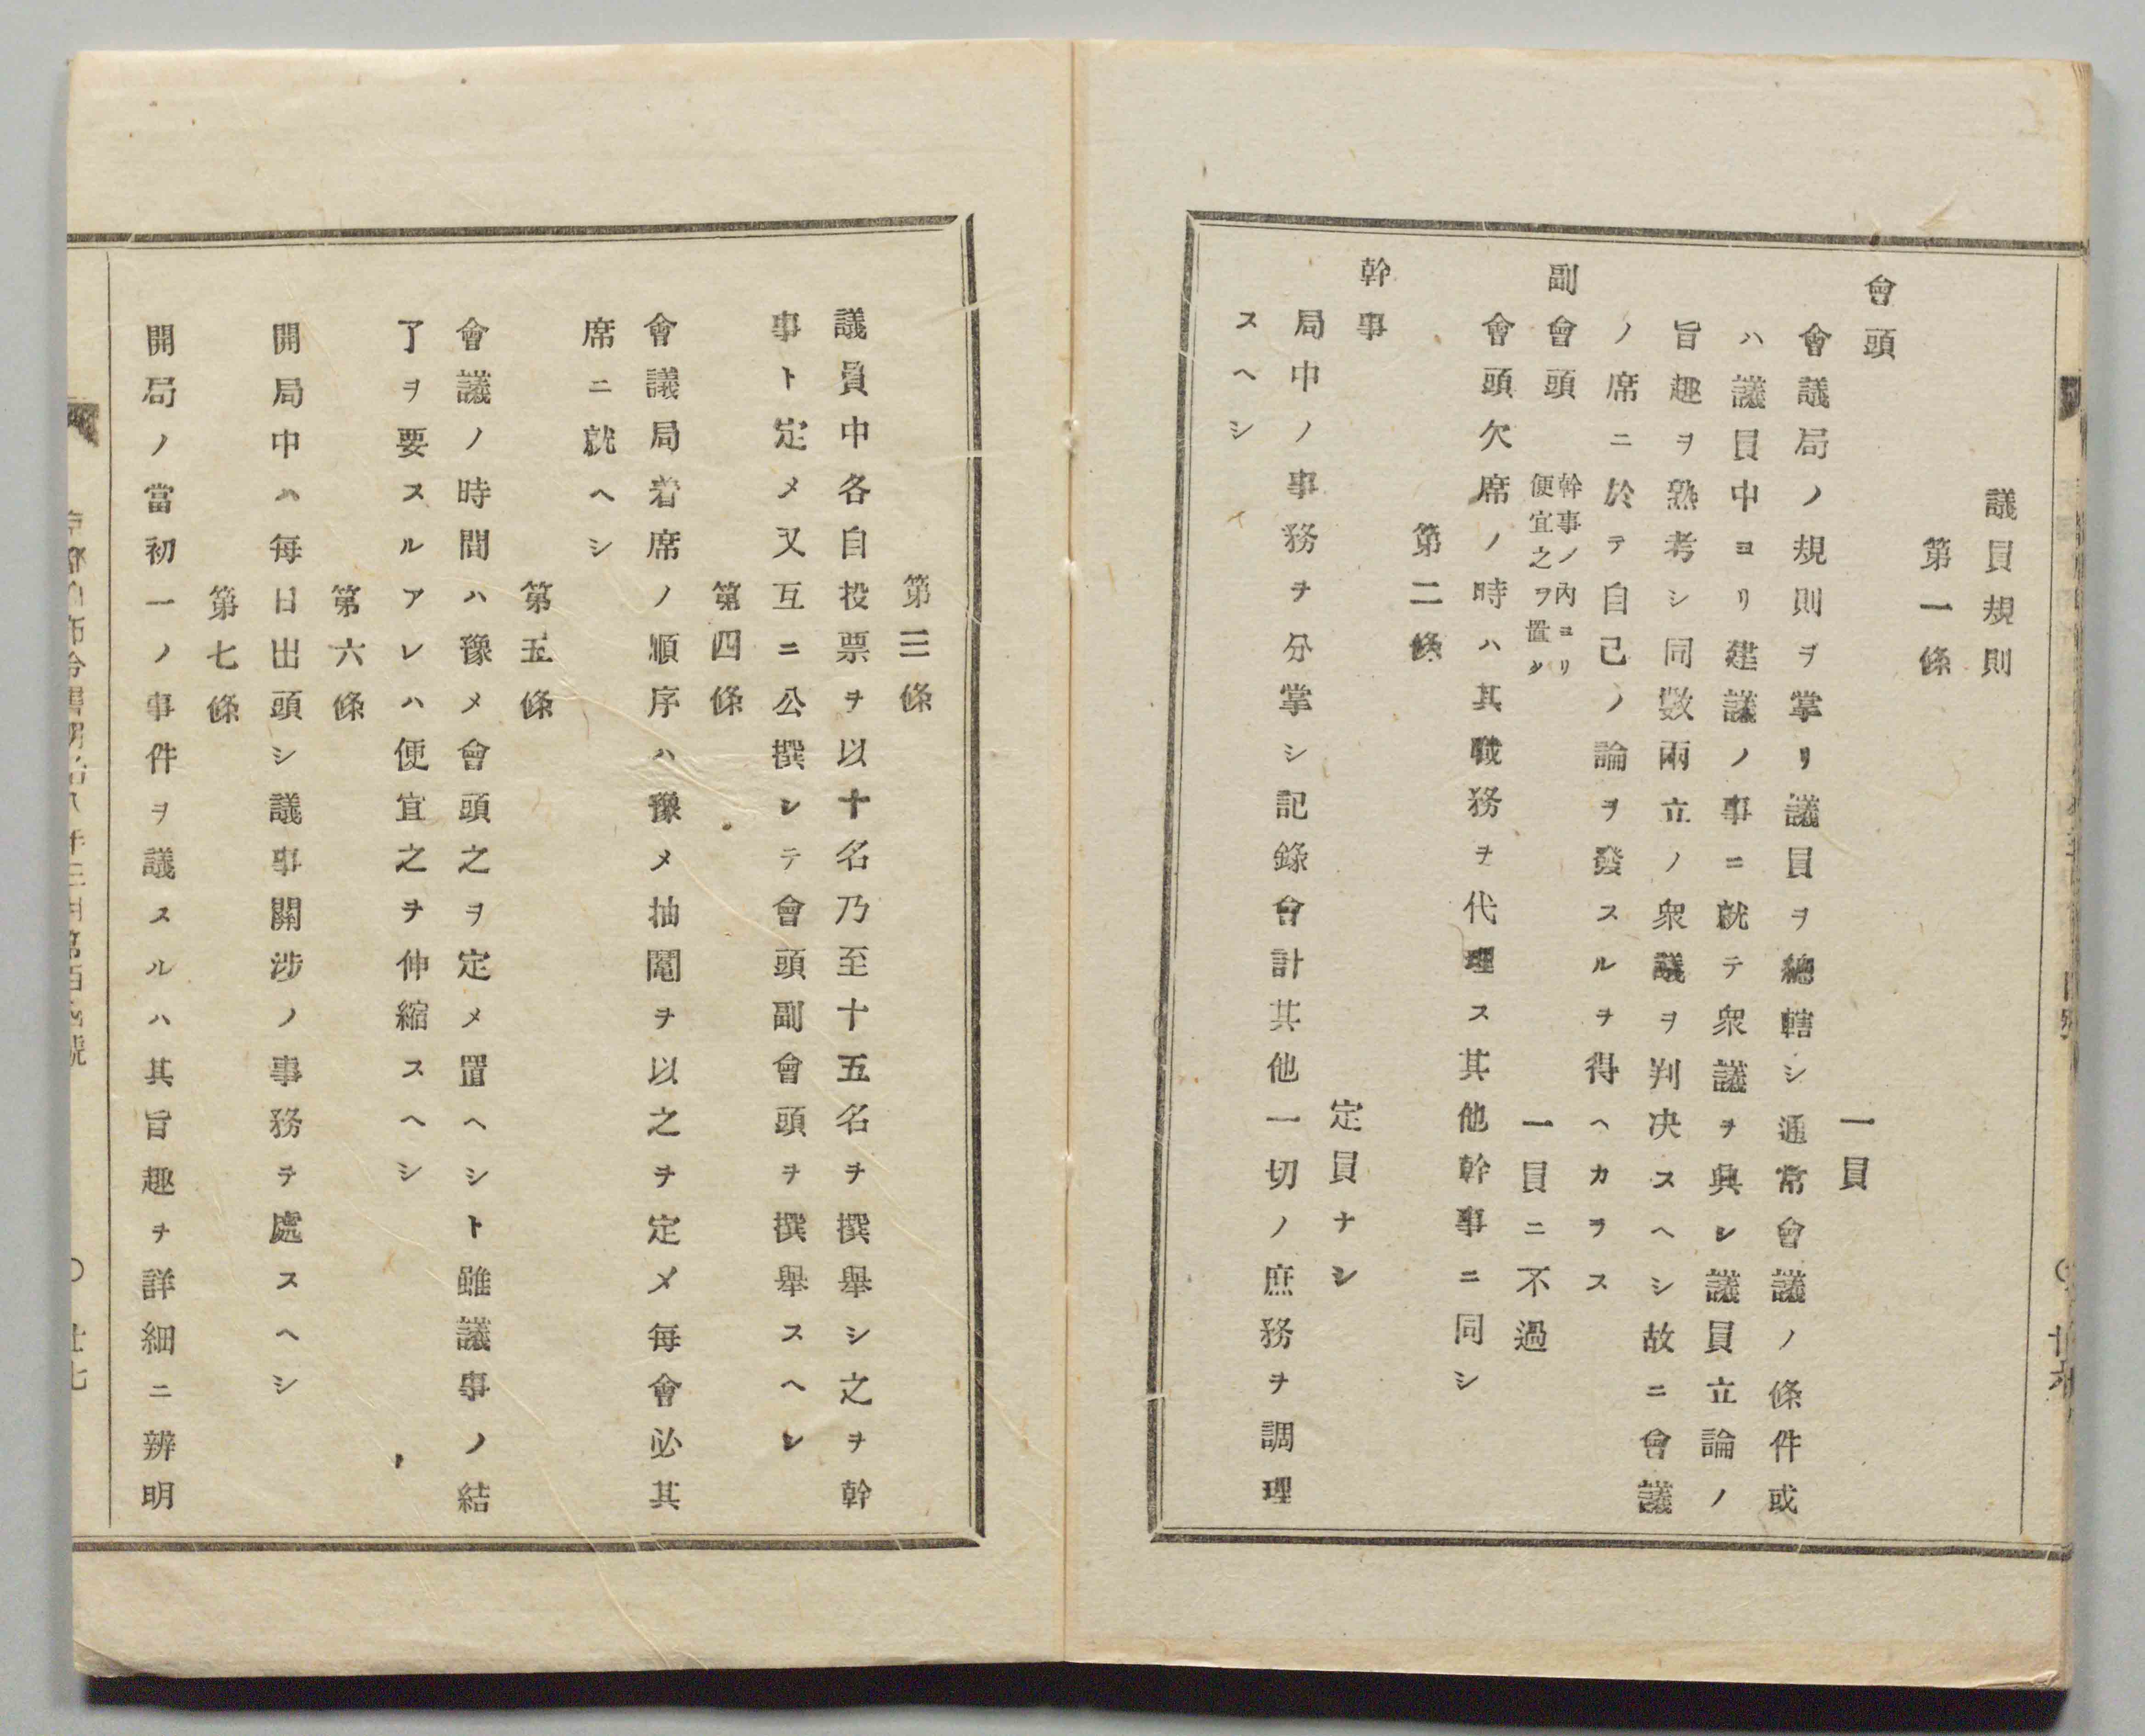 議員規則
第一條
會頭　一員
會議局ノ規則ヲ掌リ議員ヲ總轄シ通常會議ノ條件或
ハ議員中ヨリ建議ノ事ニ就テ衆議ヲ興シ議員立論ノ
旨趣ヲ熟考シ同數兩立ノ衆議ヲ判决スヘシ故ニ會議
ノ席ニ於テ自己ノ論ヲ發スルヲ得ヘカラス
副會頭　幹事ノ內ヨリ便宜之ヲ置ク　一員ニ不過
會頭欠席ノ時ハ其職務ヲ代理ス其他幹事ニ同シ
第二條
幹事　定員ナシ
局中ノ事務ヲ分掌シ記錄會計其他一切ノ庶務ヲ調理
スヘシ
第三條
議員中各自投票ヲ以十名乃至十五名ヲ撰舉シ之ヲ幹
事ト定メ又互ニ公撰シテ會頭副會頭ヲ撰舉スヘシ
第四條
會議局着席ノ順序ハ豫メ抽鬮ヲ以之ヲ定メ每會必其
席ニ就ヘシ
第五條
會議ノ時間ハ豫メ會頭之ヲ定メ置ヘシト雖議事ノ結
了ヲ要スルアレハ便宜之ヲ伸縮スヘシ
第六條
開局中ハ每日出頭シ議事關涉ノ事務ヲ處スヘシ
第七條
開局ノ當初一ノ事件ヲ議スルハ其旨趣ヲ詳細ニ辨明